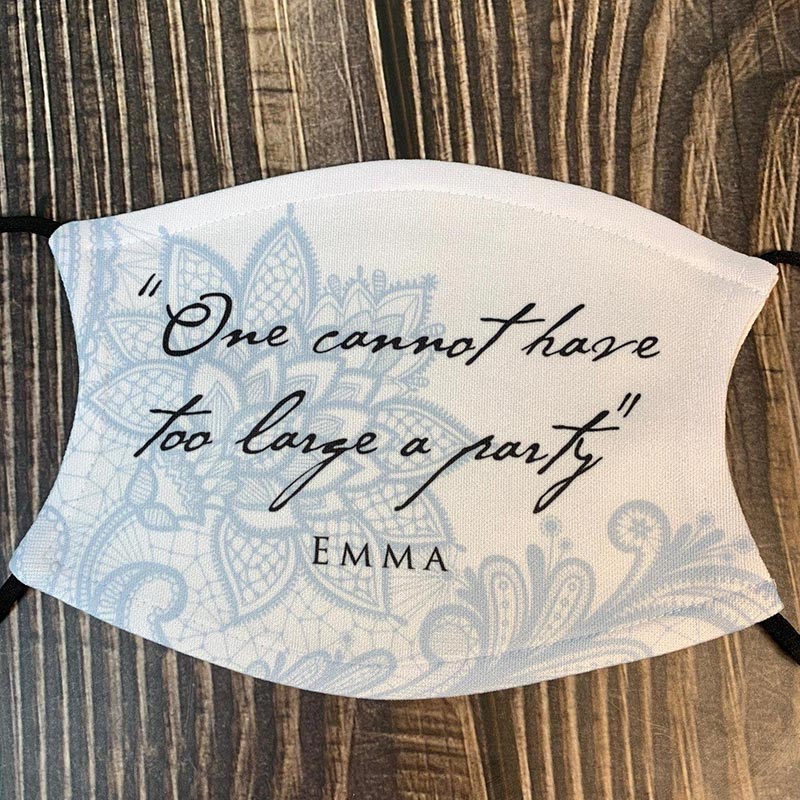 "One cannot have
too large a party"
EMMA